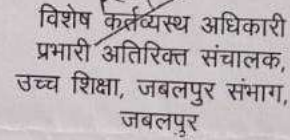 विशेष कर्तव्यस्थ अधिकारी
प्रभारी अतिरिक्त संचालक,
उच्च शिक्षा, जबलपुर संभाग,
जबलपुर